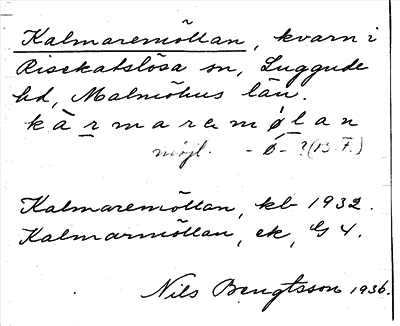 Kalmaremöllan, kvarn i
Risekatslösa sn, Luggude
hd, Malmöhus län.
kàrmaremø̀lan
möjl. -ò̷- ?(B.F.)
Kalmaremöllan, kb 1932.
Kalmarmöllan, ek, G 4.
Nils Bengtsson 1936.